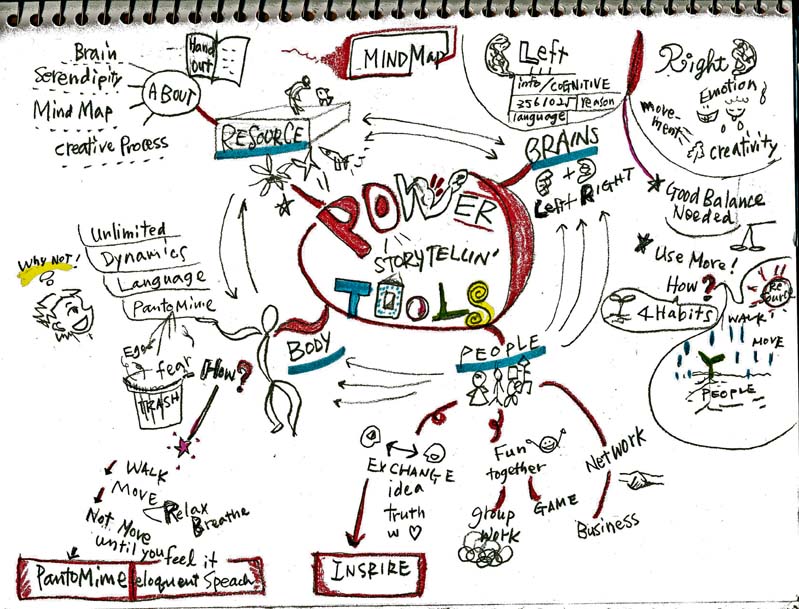 MINDMap
Hand
out
Brain
Serendipity
Mind Map
creative Process
ABOUT
RESOURCE
POWER
STORYTELLIN'
TOOLS
Left
info/COGNITIVE
3561025 reason
language
BRAINS
+
Left + RIGHT
Right
Emotion
movement
creativity
Good Balance
Needed
Use More!
How?
4 Habits
Resource
WALK
MOVE
PEOPLE
Unlimited
Dynamics
Language
PantoMime
Why Not!
Ego
fear
TRASH
BODY
How?
WALK
MOVE
Relax
Breathe
Not Move
until you feel it
PantoMime
eloquent Speach
PEOPLE
EXCHANGE
idea
truth
w ♡
INSPIRE
Fun
together
group
work
GAME
Network
Business